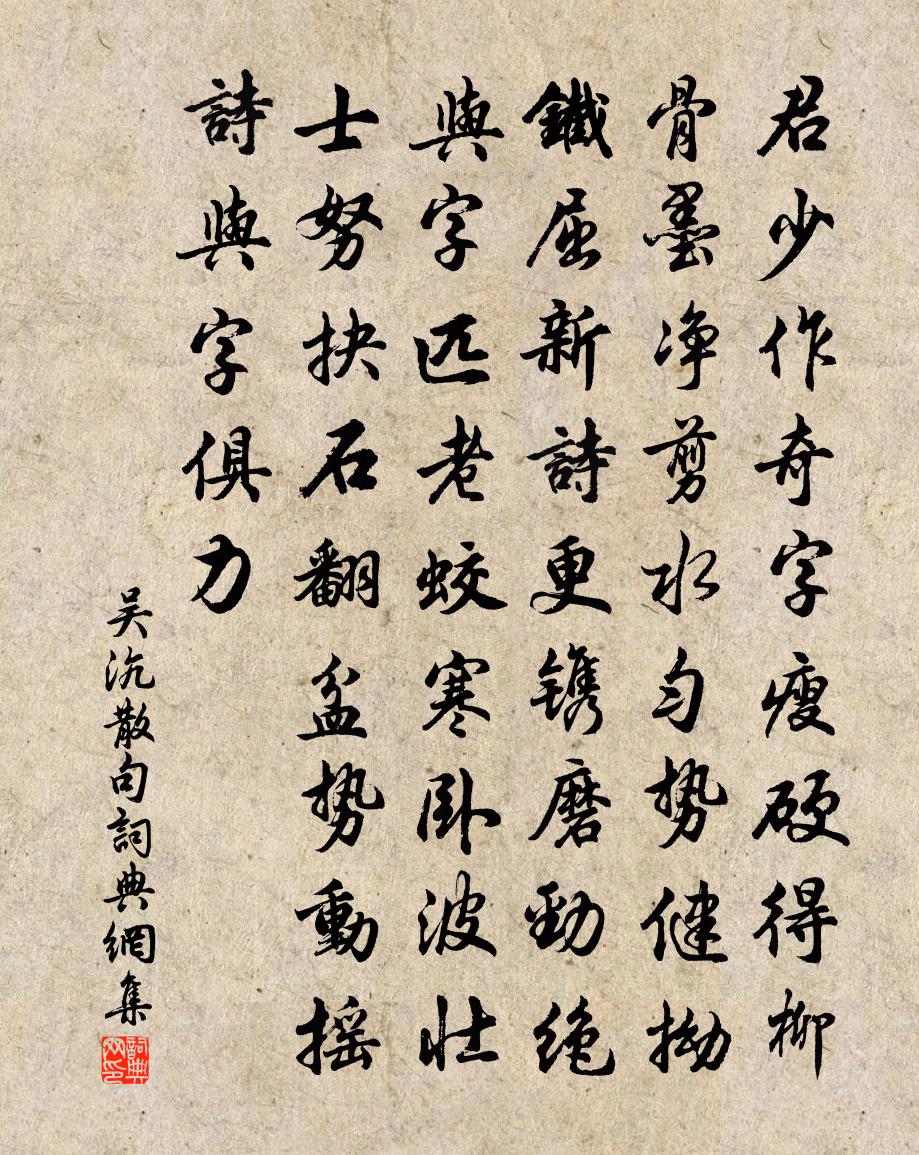 君少作奇字瘦硬得柳
骨墨净剪水匀势健拗
鐵屈新詩更镌磨勁绝
與字匹老蛟寒卧波壮
士努抉石翻盆势動摇
詩與字俱力
吴沉散句詞典網集
詞典网印